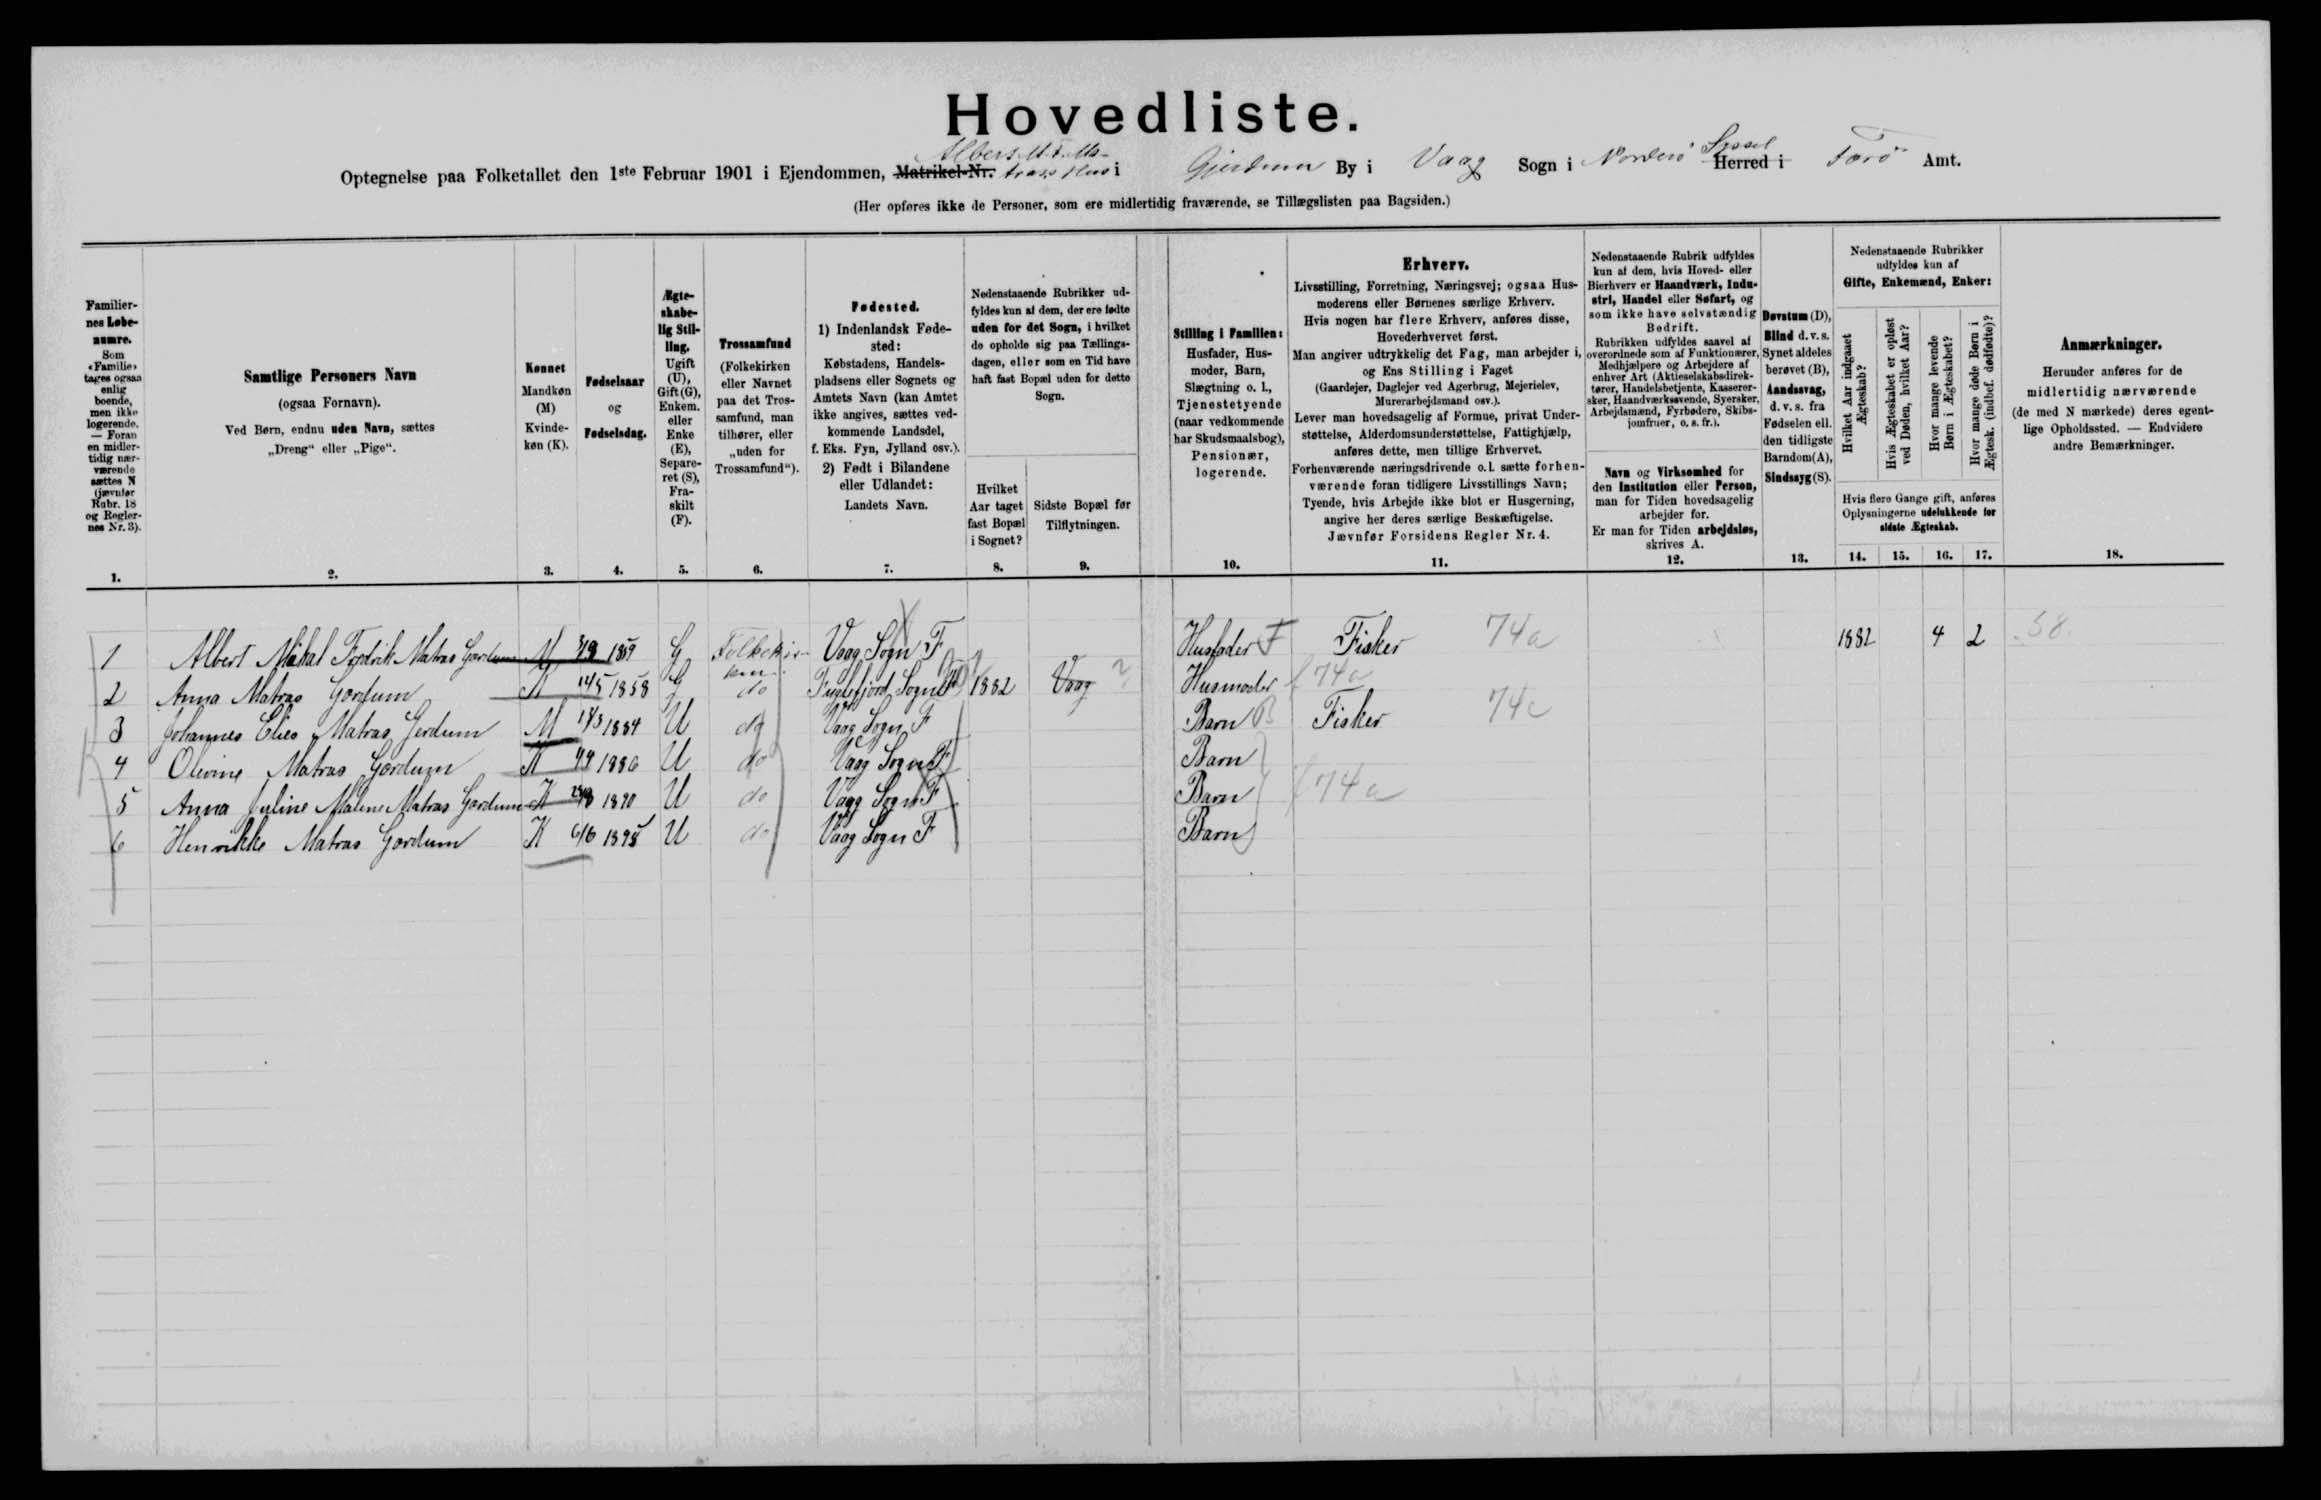 Hovedliste.
Optegnelse paa Folketallet den 1ste Februar 1901 i Ejendommen, Matrikel-Nr. Albert M. F. Ma-trass Hus i Gjerdum By i Vaag Sogn i Norderö Herred i Syssel Færö Amt.
(Her opføres ikke de Personer, som ere midlertidig fraværende, se Tillægslisten paa Bagsiden.)
Familiernes Løbenumre. Som «Familie» tages ogsaa enlig boende, men ikke logerende. — Foran en midlertidig nærværende sættes N (jævnfør Rubr. 18 og Reglernes Nr. 3).
Samtlige Personers Navn (ogsaa Fornavn). Ved Børn, endnu uden Navn, sættes „Dreng“ eller „Pige“.
Kønnet Mandkøn (M) Kvindekøn (K).
Fødselsaar og Fødselsdag.
Ægteskabelig Stilling. Ugift (U), Gift (G), Enkem. eller Enke (E), Separeret (S), Fraskilt (F).
Trossamfund (Folkekirken eller Navnet paa det Trossamfund, man tilhører, eller „uden for Trossamfund“).
Fødested. 1) Indenlandsk Fødested: Købstadens, Handelspladsens eller Sognets og Amtets Navn (kan Amtet ikke angives, sættes vedkommende Landsdel, f. Eks. Fyn, Jylland osv.). 2) Født i Bilandene eller Udlandet: Landets Navn.
Nedenstaaende Rubrikker udfyldes kun af dem, der ere fødte uden for det Sogn, i hvilket de opholde sig paa Tællingsdagen, eller som en Tid have haft fast Bopæl uden for dette Sogn.
Hvilket Aar taget fast Bopæl i Sognet?
Sidste Bopæl før Tilflytningen.
Stilling i Familien: Husfader, Husmoder, Barn, Slægtning o. l., Tjenestetyende (naar vedkommende har Skudsmaalsbog), Pensionær, logerende.
Erhverv.
Livsstilling, Forretning, Næringsvej; ogsaa Husmoderens eller Børnenes særlige Erhverv.
Hvis nogen har flere Erhverv, anføres disse, Hovederhvervet først.
Man angiver udtrykkelig det Fag, man arbejder i, og Ens Stilling i Faget (Gaardejer, Daglejer ved Agerbrug, Mejerielev, Murerarbejdsmand osv.).
Lever man hovedsagelig af Formue, privat Understøttelse, Alderdomsunderstøttelse, Fattighjælp, anføres dette, men tillige Erhvervet.
Forhenværende næringsdrivende o. l. sætte forhenværende foran tidligere Livsstillings Navn; Tyende, hvis Arbejde ikke blot er Husgerning, angive her deres særlige Beskæftigelse.
Jævnfør Forsidens Regler Nr. 4.
Nedenstaaende Rubrik udfyldes kun af dem, hvis Hoved- eller Bierhverv er Haandværk, Industri, Handel eller Søfart, og som ikke have selvstændig Bedrift.
Rubrikken udfyldes saavel af overordnede som af Funktionærer, Medhjælpere og Arbejdere af enhver Art (Aktieselskabsdirektører, Handelsbetjente, Kasserersker, Haandværkssvende, Syersker, Arbejdsmænd, Fyrbødere, Skibsjomfruer, o. s. fr.).
Navn og Virksomhed for den Institution eller Person, man for Tiden hovedsagelig arbejder for. Er man for Tiden arbejdsløs, skrives A.
Døvstum (D), Blind d. v. s. Synet aldeles berøvet (B), Aandssvag, d. v. s. fra Fødselen ell. den tidligste Barndom (A), Sindssyg (S).
Nedenstaaende Rubrikker udfyldes kun af Gifte, Enkemænd, Enker:
Hvilket Aar indgaaet Ægteskab?
Hvis Ægteskabet er opløst ved Døden, hvilket Aar?
Hvor mange levende Børn i Ægteskabet?
Hvor mange døde Børn i Ægtesk. (indbef. dødfødte)?
Hvis flere Gange gift, anføres Oplysningerne udelukkende for sidste Ægteskab.
Anmærkninger. Herunder anføres for de midlertidig nærværende (de med N mærkede) deres egentlige Opholdssted. — Endvidere andre Bemærkninger.
1. 2. 3. 4. 5. 6. 7. 8. 9. 10. 11. 12. 13. 14. 15. 16. 17. 18.
1 Albert Mikal Fredrik Matras Gærdum M G Folkekirken Vaag Sogn F Husfader F Fisker 74a 1882 4 2 58
2 Anna Matras Gærdum K 14/5 1858 G do Fuglefjord Sogn F 1882 Vaag ? Husmoder f 74a
3 Johannes Elies Matras Gerdum M 17/3 1884 U do Vaag Sogn F Barn B Fisker 74c
4 Olevine Matras Gærdum K 4/4 1886 U do Vaag Sogn F Barn
5 Anna Juline Malene Matras Gærdum K 1890 U do Vaag Sogn F Barn f 74a
6 Henrikke Matras Gærdum K 6/6 1895 U do Vaag Sogn F Barn